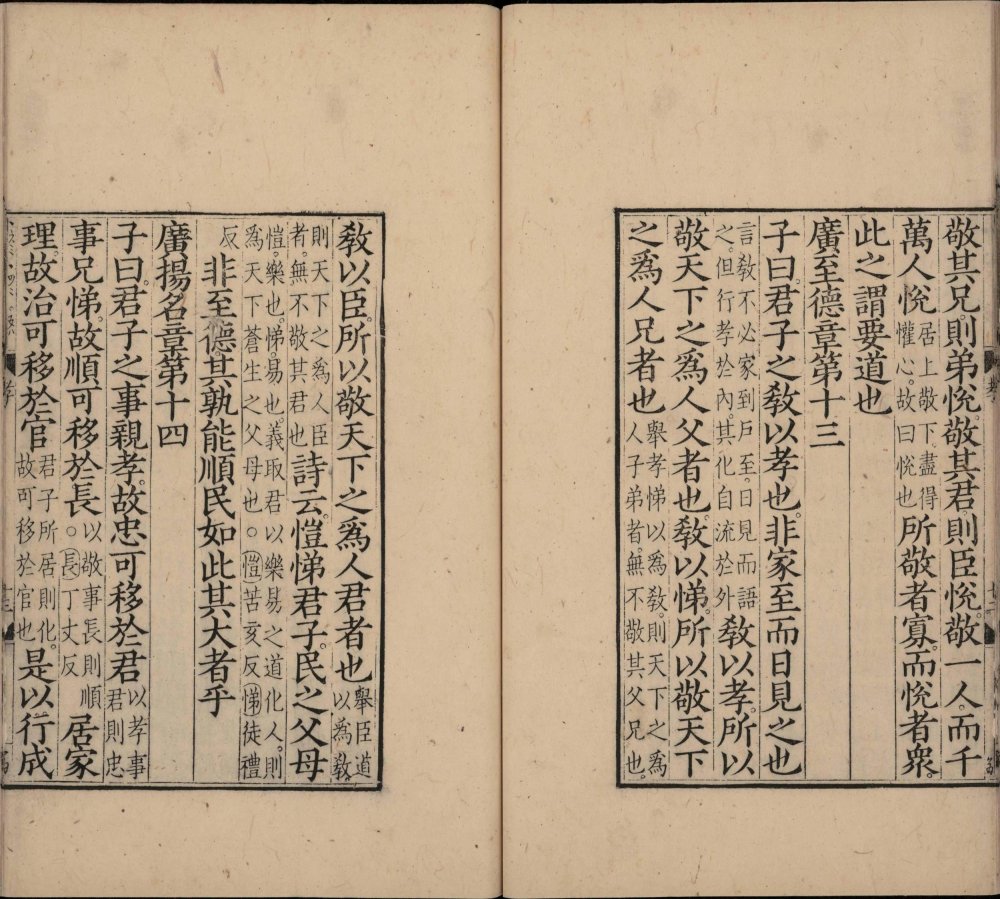 敬其兄。則弟悅。敬其君。則臣悅。敬一人。而千
萬人悅居上敬下。盡得懽心。故曰悅也所敬者寡。而悅者衆。
此之謂要道也
廣至德章第十三
子曰。君子之敎以孝也。非家至而日見之也
言敎不必家到戶至。日見而語之。但行孝於內。其化自流於外敎以孝。所以
敬天下之爲人父者也。敎以悌。所以敬天下
之爲人兄者也舉孝悌以爲敎。則天下之爲人子弟者。無不敬其父兄也。
敎以臣。所以敬天下之爲人君者也舉臣道以爲敎
則天下之爲人臣者。無不敬其君也詩云。愷悌君子。民之父母
愷。樂也。悌。易也。義取君以樂易之道化人。則爲天下蒼生之父母也。○愷苦亥反悌徒禮
反非至德。其孰能順民如此其大者乎
廣揚名章第十四
子曰。君子之事親孝。故忠可移於君以孝事君則忠
事兄悌。故順可移於長以敬事長則順○長丁丈反居家
理。故治可移於官君子所居則化。故可移於官也是以行成
孝